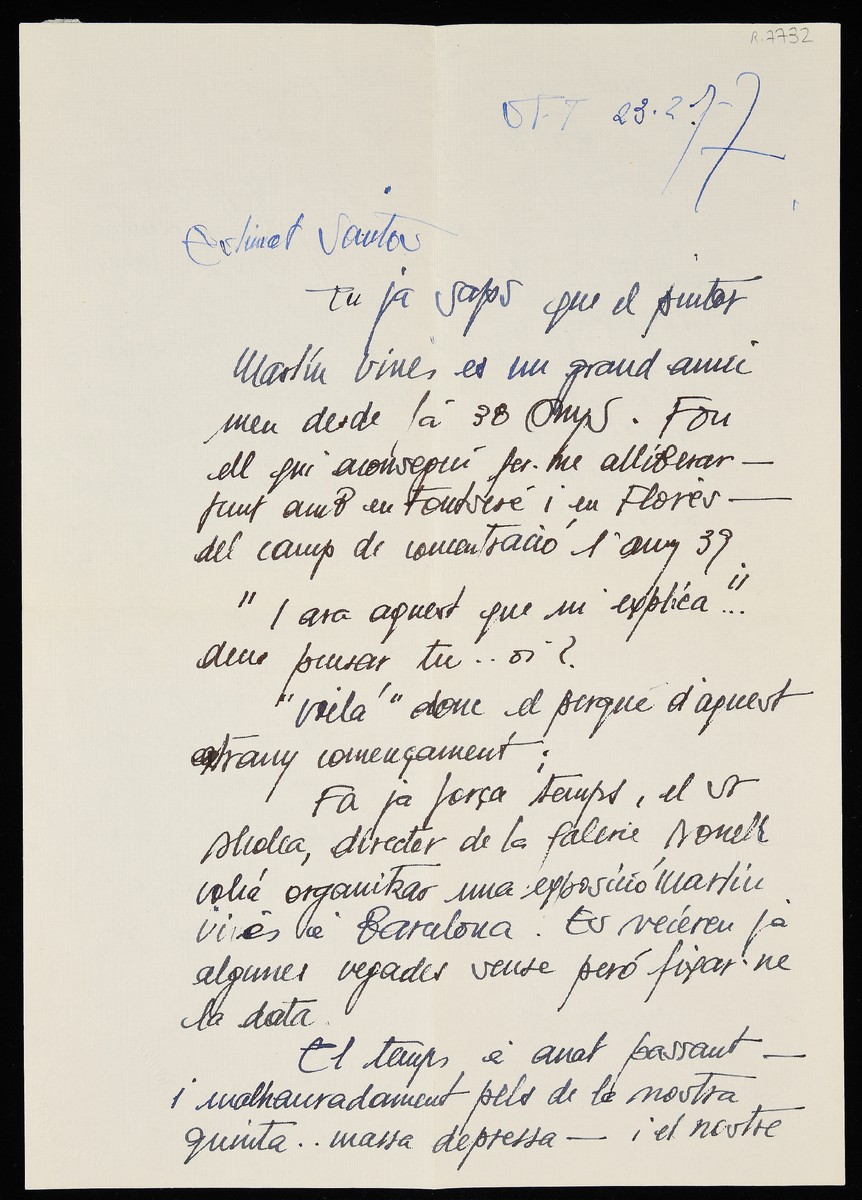 R.7732
23.2.77
Estimat Santos
Tu ja saps que el pintor
Martín Vivés es un grand amic
meu desde fà 38 anys. Fou
ell qui aconseguí fer-me alliberar —
junt amb en Fontseré i en Florès —
del camp de concentració l'any 39
"I ara aquest que m'explica"...
deus pensar tu... oi?
"Voilà" donc el perqué d'aquest
estrany començament:
Fa ja força temps, el sr
director de la Galerie Nonell
volia organitzar una exposició Martin
Vivés a Barcelona. Es veieren ja
algunes vegades sense però fixar-ne
la data.
El temps a anat passant —
i malhauradament pels de la nostra
quinta.. massa depressa — i el nostre